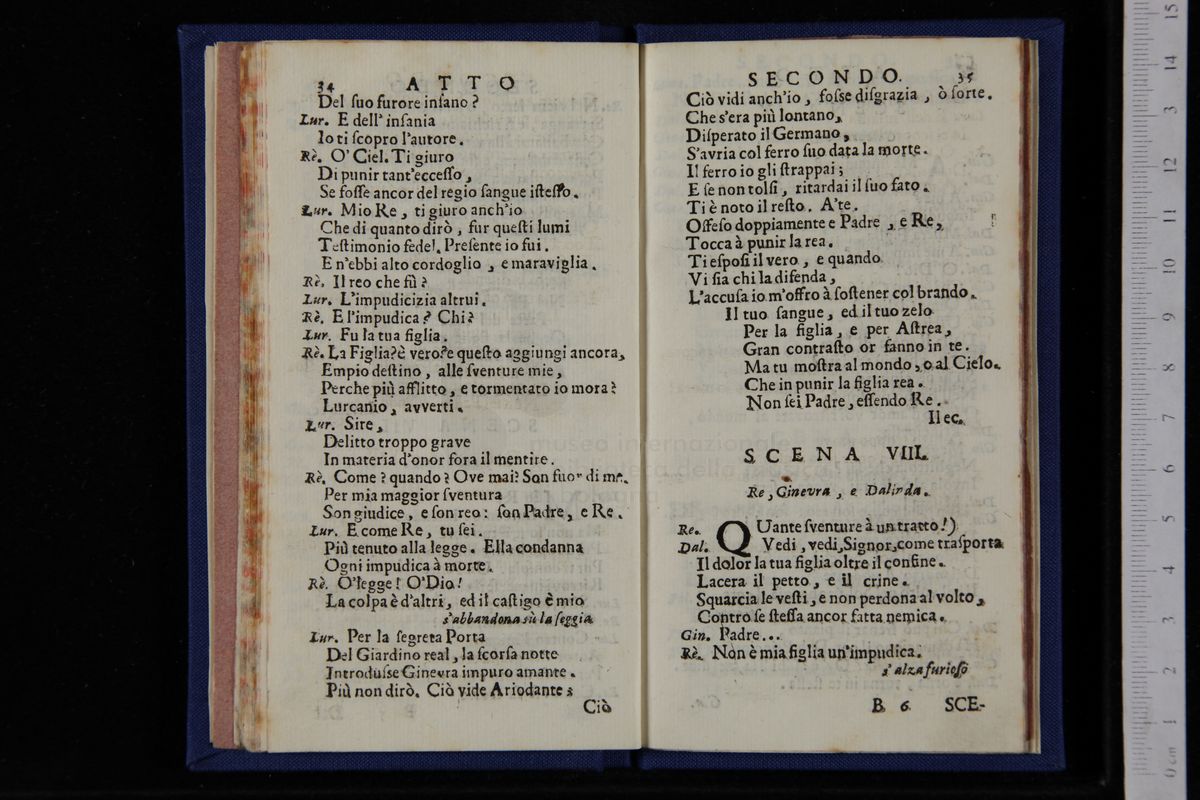 34 ATTO
Del ſuo furore inſano?
Lur. E dell' inſania
Io ti ſcopro l'autore.
Rè. O' Ciel. Ti giuro
Di punir tant'ecceſſo,
Se foſſe ancor del regio ſangue iſteſſo.
Lur. Mio Re, ti giuro anch'io
Che di quanto dirò, fur queſti lumi
Teſtimonio fedel. Preſente io fui.
E n'ebbi alto cordoglio, e maraviglia.
Rè. Il reo che fù?
Lur. L'impudicizia altrui.
Rè. E l'impudica? Chi?
Lur. Fu la tua figlia.
Rè. La Figlia? è vero? e queſto aggiungi ancora,
Empio deſtino, alle ſventure mie,
Perche più afflitto, e tormentato io mora?
Lurcanio, avverti.
Lur. Sire,
Delitto troppo grave
In materia d'onor fora il mentire.
Rè. Come? quando? Ove mai? Son fuor di me.
Per mia maggior ſventura
Son giudice, e ſon reo: ſon Padre, e Re.
Lur. E come Re, tu ſei.
Più tenuto alla legge. Ella condanna
Ogni impudica à morte.
Rè. O' legge! O' Dio!
La colpa è d'altri, ed il caſtigo è mio
s'abbandona sù la ſeggia
Lur. Per la ſegreta Porta
Del Giardino real, la ſcorſa notte
Introduſse Ginevra impuro amante.
Più non dirò. Ciò vide Ariodante;
Ciò
SECONDO. 35
Ciò vidi anch'io, foſse diſgrazia, ò ſorte.
Che s'era più lontano,
Diſperato il Germano,
S'avria col ferro ſuo data la morte.
Il ferro io gli ſtrappai;
E ſe non tolſi, ritardai il ſuo fato.
Ti è noto il reſto. A' te.
Offeſo doppiamente e Padre, e Re,
Tocca à punir la rea.
Ti eſpoſi il vero, e quando
Vi ſia chi la difenda,
L'accuſa io m'offro à ſoſtener col brando.
Il tuo ſangue, ed il tuo zelo
Per la figlia, e per Aſtrea,
Gran contraſto or fanno in te.
Ma tu moſtra al mondo, o al Cielo.
Che in punir la figlia rea.
Non ſei Padre, eſſendo Re.
Il ec.
SCENA VIII.
Re, Ginevra, e Dalinda.
Re. QUante ſventure à un tratto!)
Dal. Vedi, vedi, Signor, come traſporta
Il dolor la tua figlia oltre il confine.
Lacera il petto, e il crine.
Squarcia le veſti, e non perdona al volto,
Contro ſe ſteſſa ancor fatta nemica.
Gin. Padre...
Rè. Non è mia figlia un'impudica.
s'alza furioſo
B 6. SCE-
museo internazionale